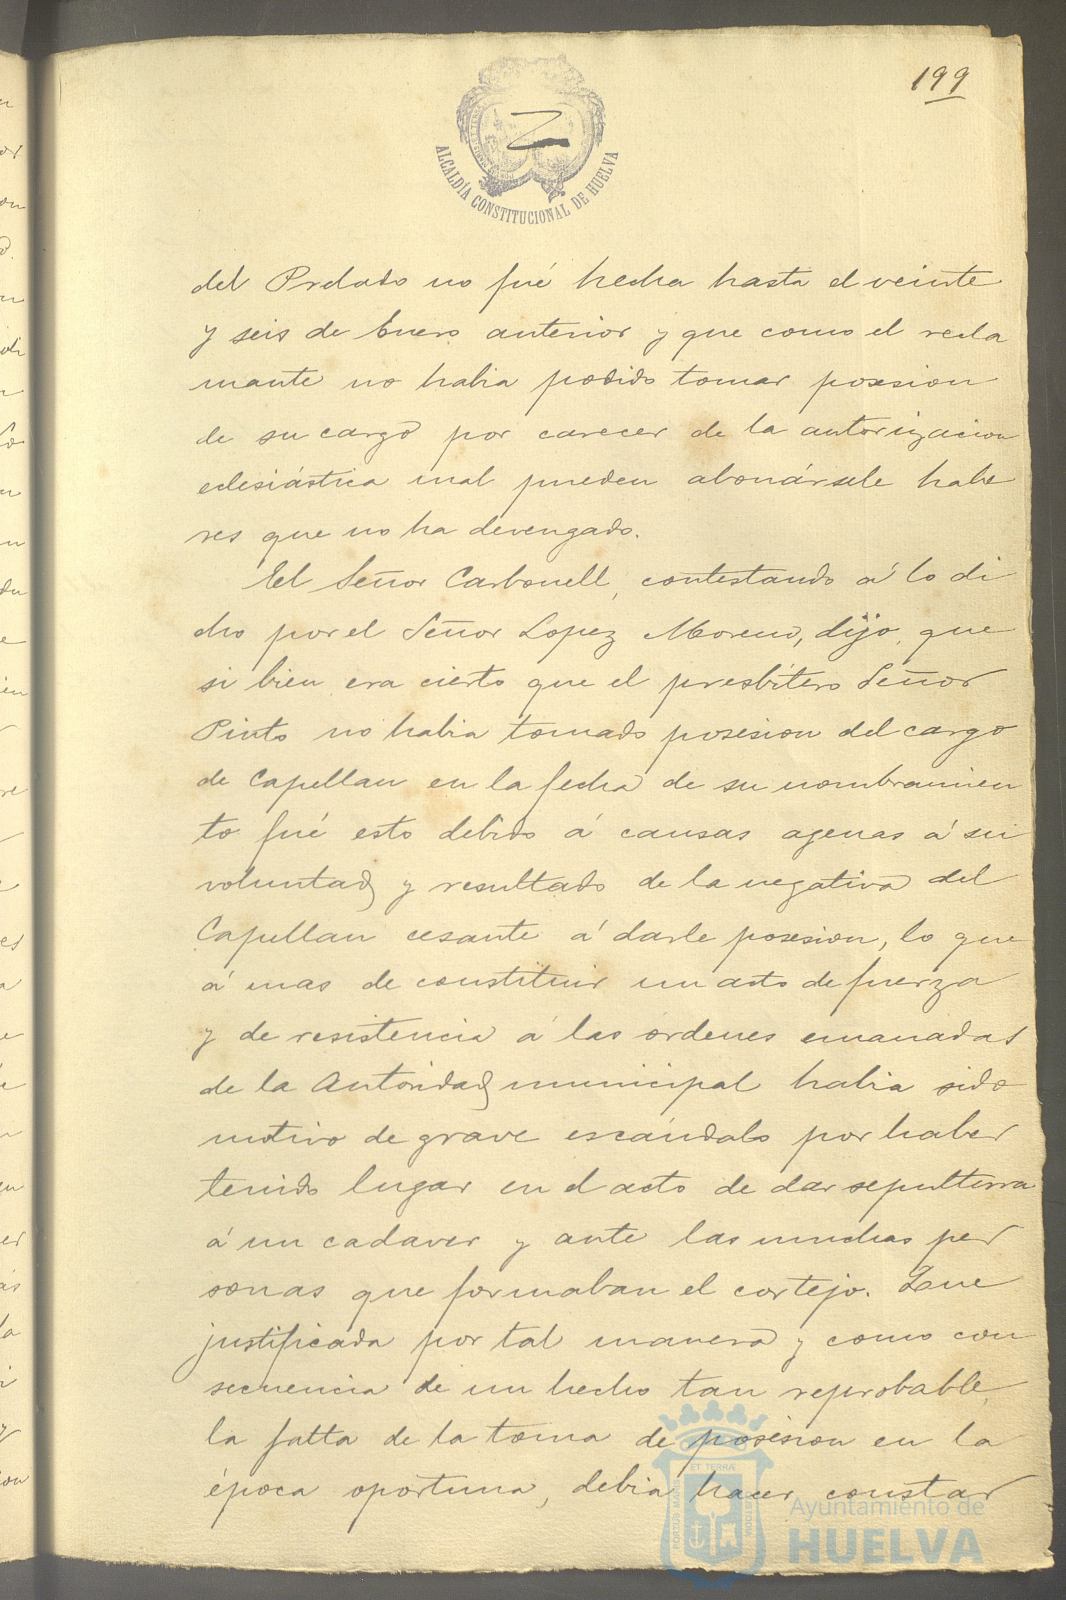 199
ALCALDÍA CONSTITUCIONAL DE HUELVA
del Prelado no fué hecha hasta el veinte
y seis de Enero anterior y que como el recla
mante no habia podido tomar posesion
de su cargo por carecer de la autorizacion
eclesiástica mal pueden abonársele habe
res que no ha devengado.
El Señor Carbonell, contestando á lo di
cho por el Señor Lopez Moreno, dijo, que
si bien era cierto que el presbítero Señor
Pinto no habia tomado posesion del cargo
de Capellan en la fecha de su nombramien
to fué esto debido á causas agenas á su
voluntad y resultado de la negativa del
Capellan cesante á darle posesion, lo que
á mas de constituir un acto de fuerza
y de resistencia á las órdenes emanadas
de la Autoridad municipal habia sido
motivo de grave escándalo por haber
tenido lugar en el acto de dar sepultura
á un cadaver y ante las muchas per
sonas que formaban el cortejo. Que
justificada por tal manera y como con
secuencia de un hecho tan reprobable
la falta de la toma de posesion en la
época oportuna, debia hacer constar
ET TERRÆ
PORTUS MARIS
CUSTODIA
Ayuntamiento de
HUELVA